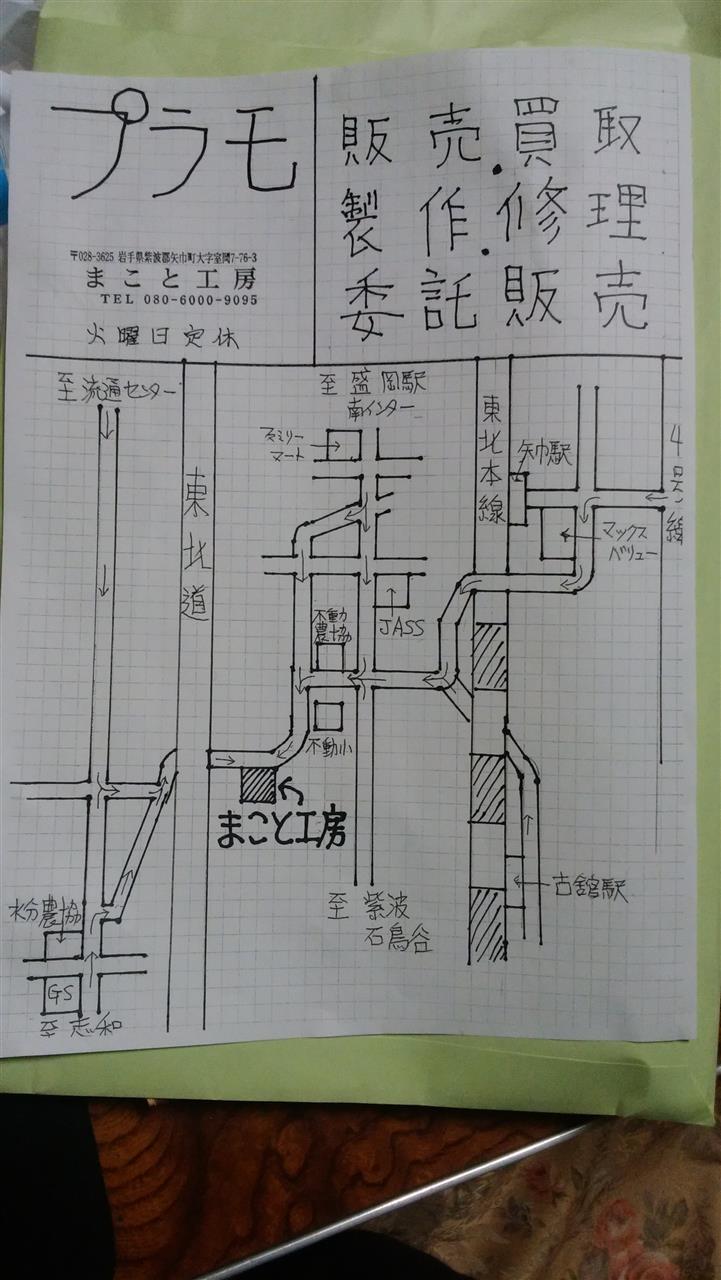 プラモ
〒028-3625 岩手県紫波郡矢巾町大字室岡7-76-3
まこと工房
TEL 080-6000-9095
火曜日定休
販売・買取
製作・修理
委託販売
至 流通センター
至 盛岡駅
南インター
ファミリーマート
東北本線
矢巾駅
4号線
東北道
マックス
バリュー
不動
農協
JASS
不動小
まこと工房
古舘駅
至 紫波
石鳥谷
水分農協
GS
至 志和